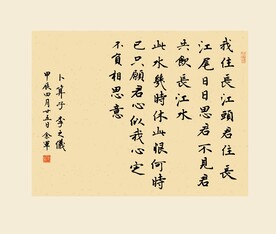 我住長江頭君住長
江尾日日思君不見君
共飲長江水
此水幾時休此恨何時
已只願君心似我心定
不負相思意
卜算子 李之儀
甲辰四月廿五日 金軍